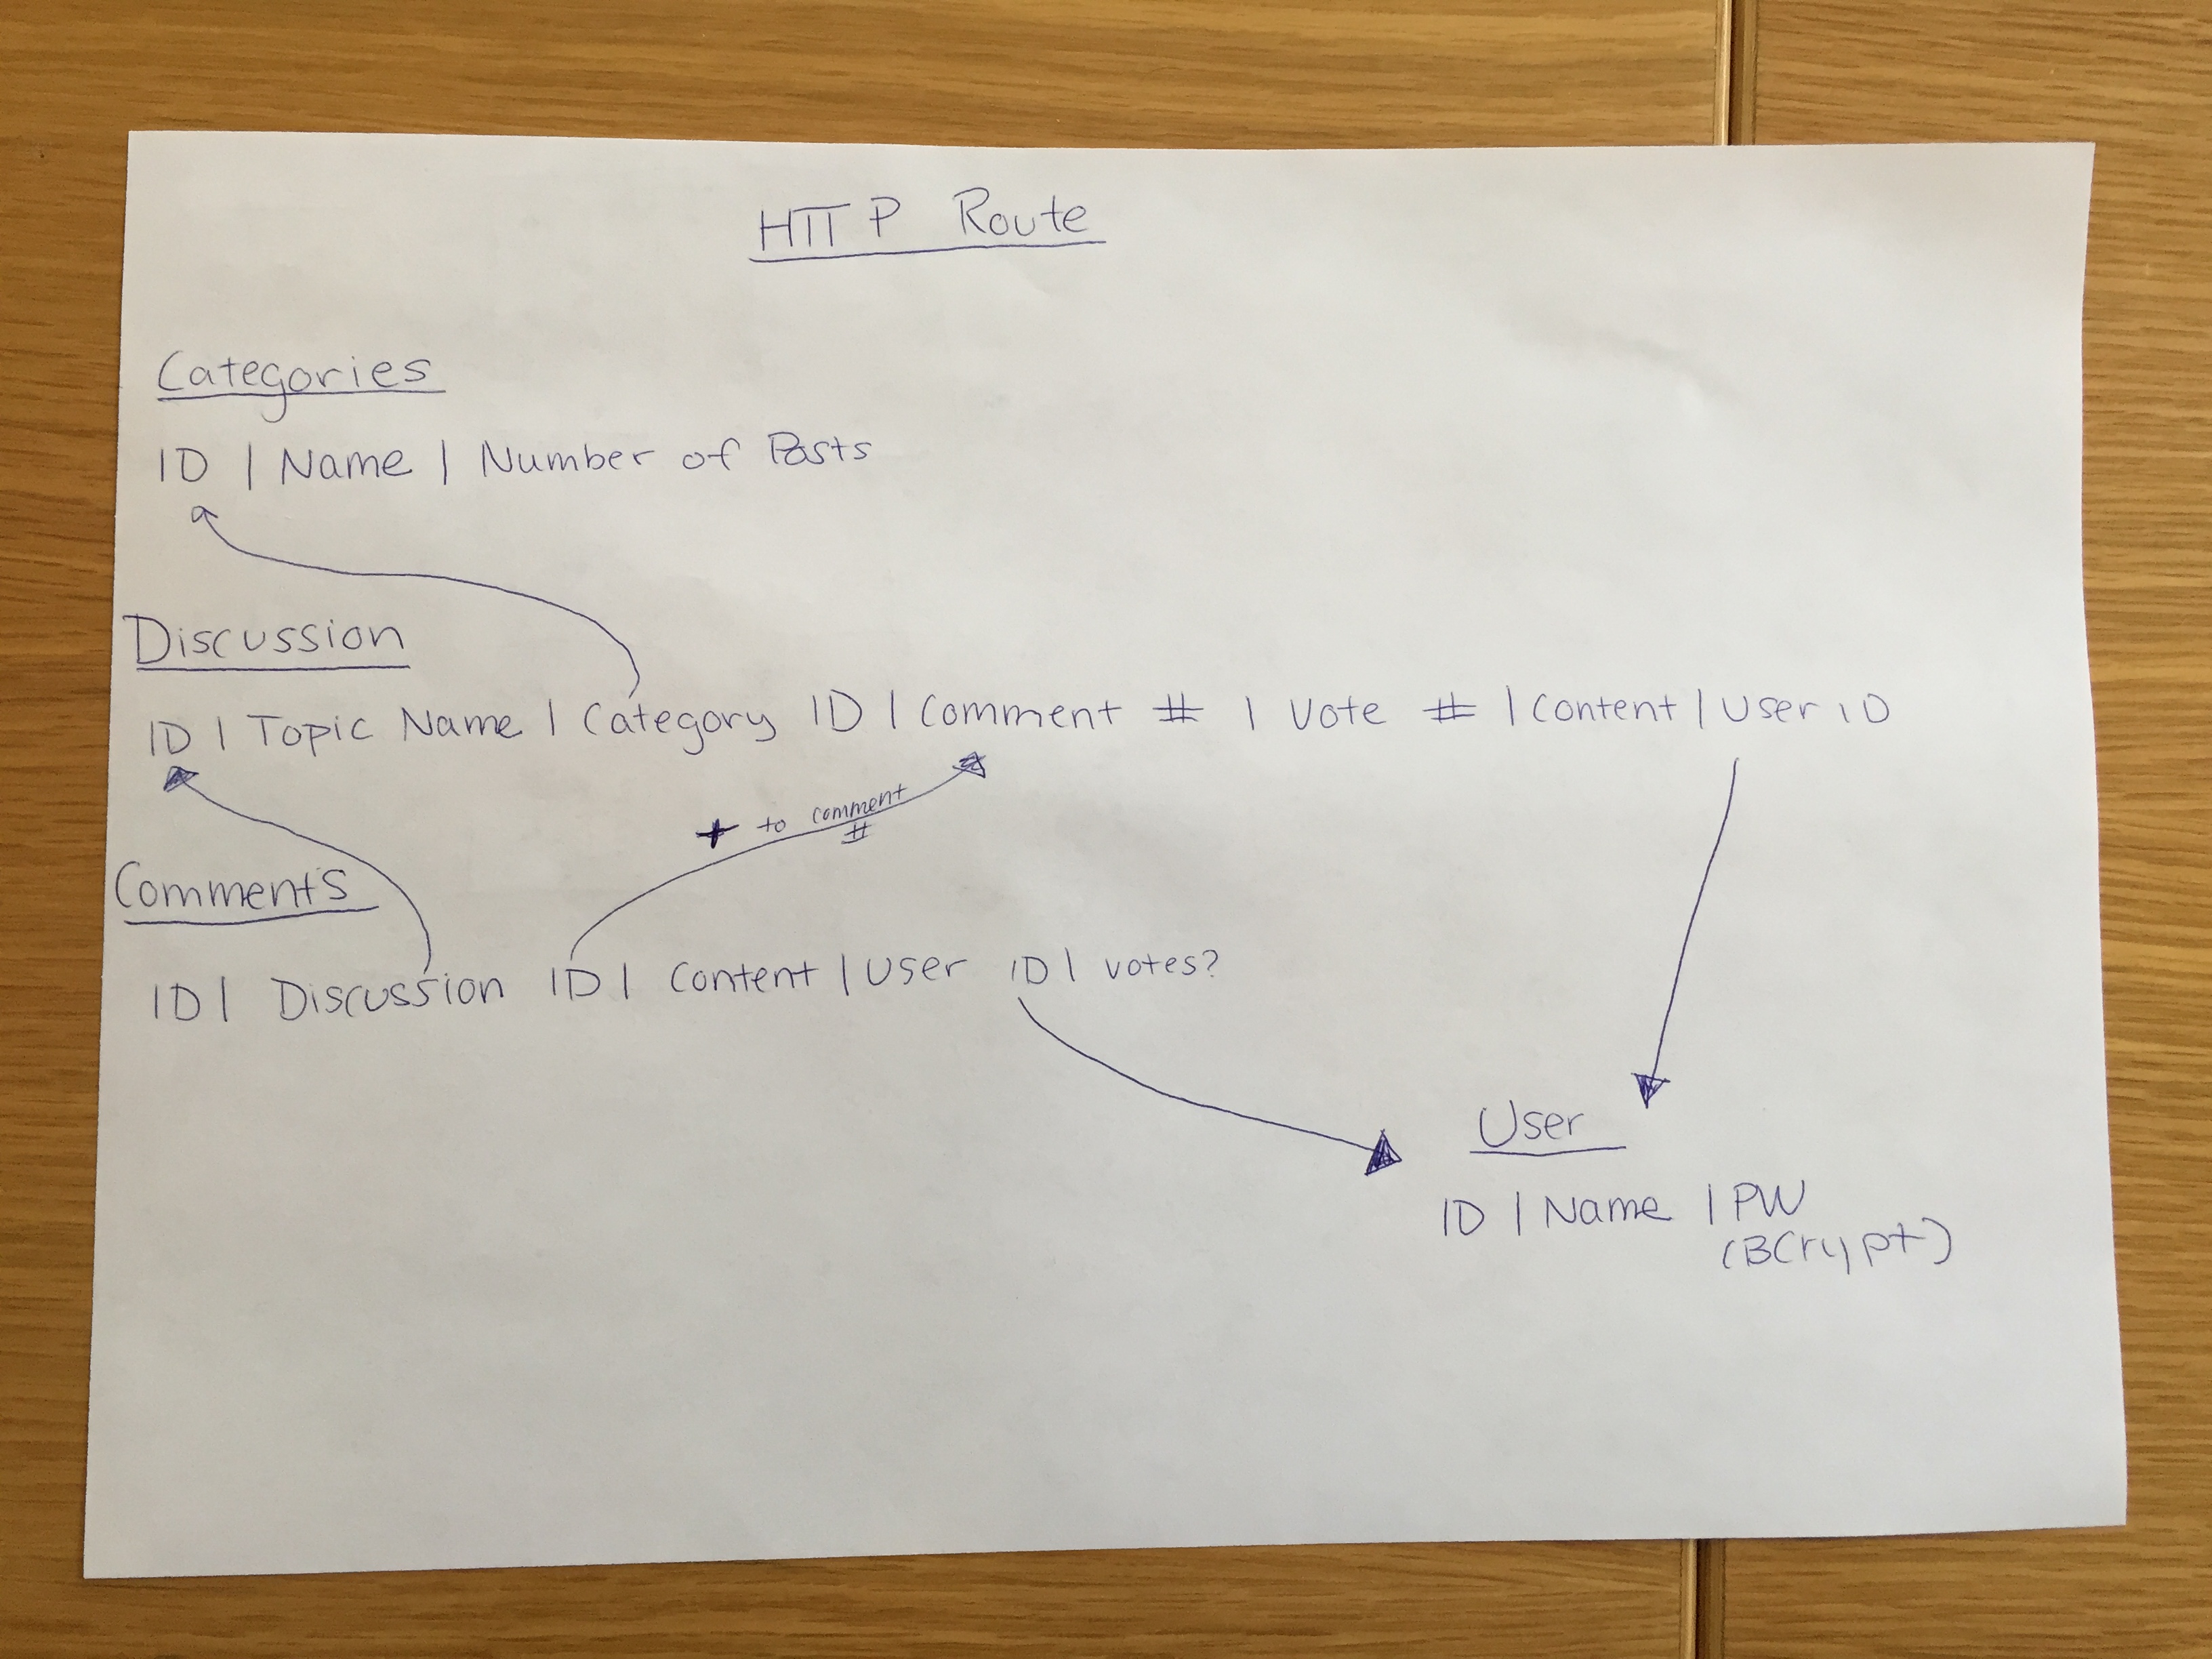 HTTP Route
Categories
ID | Name | Number of Posts
Discussion
ID | Topic Name | Category ID | Comment # | Vote # | Content | User ID
+ to comment
#
Comments
ID | Discussion ID | Content | User ID | votes?
User
ID | Name | PW
(BCrypt)